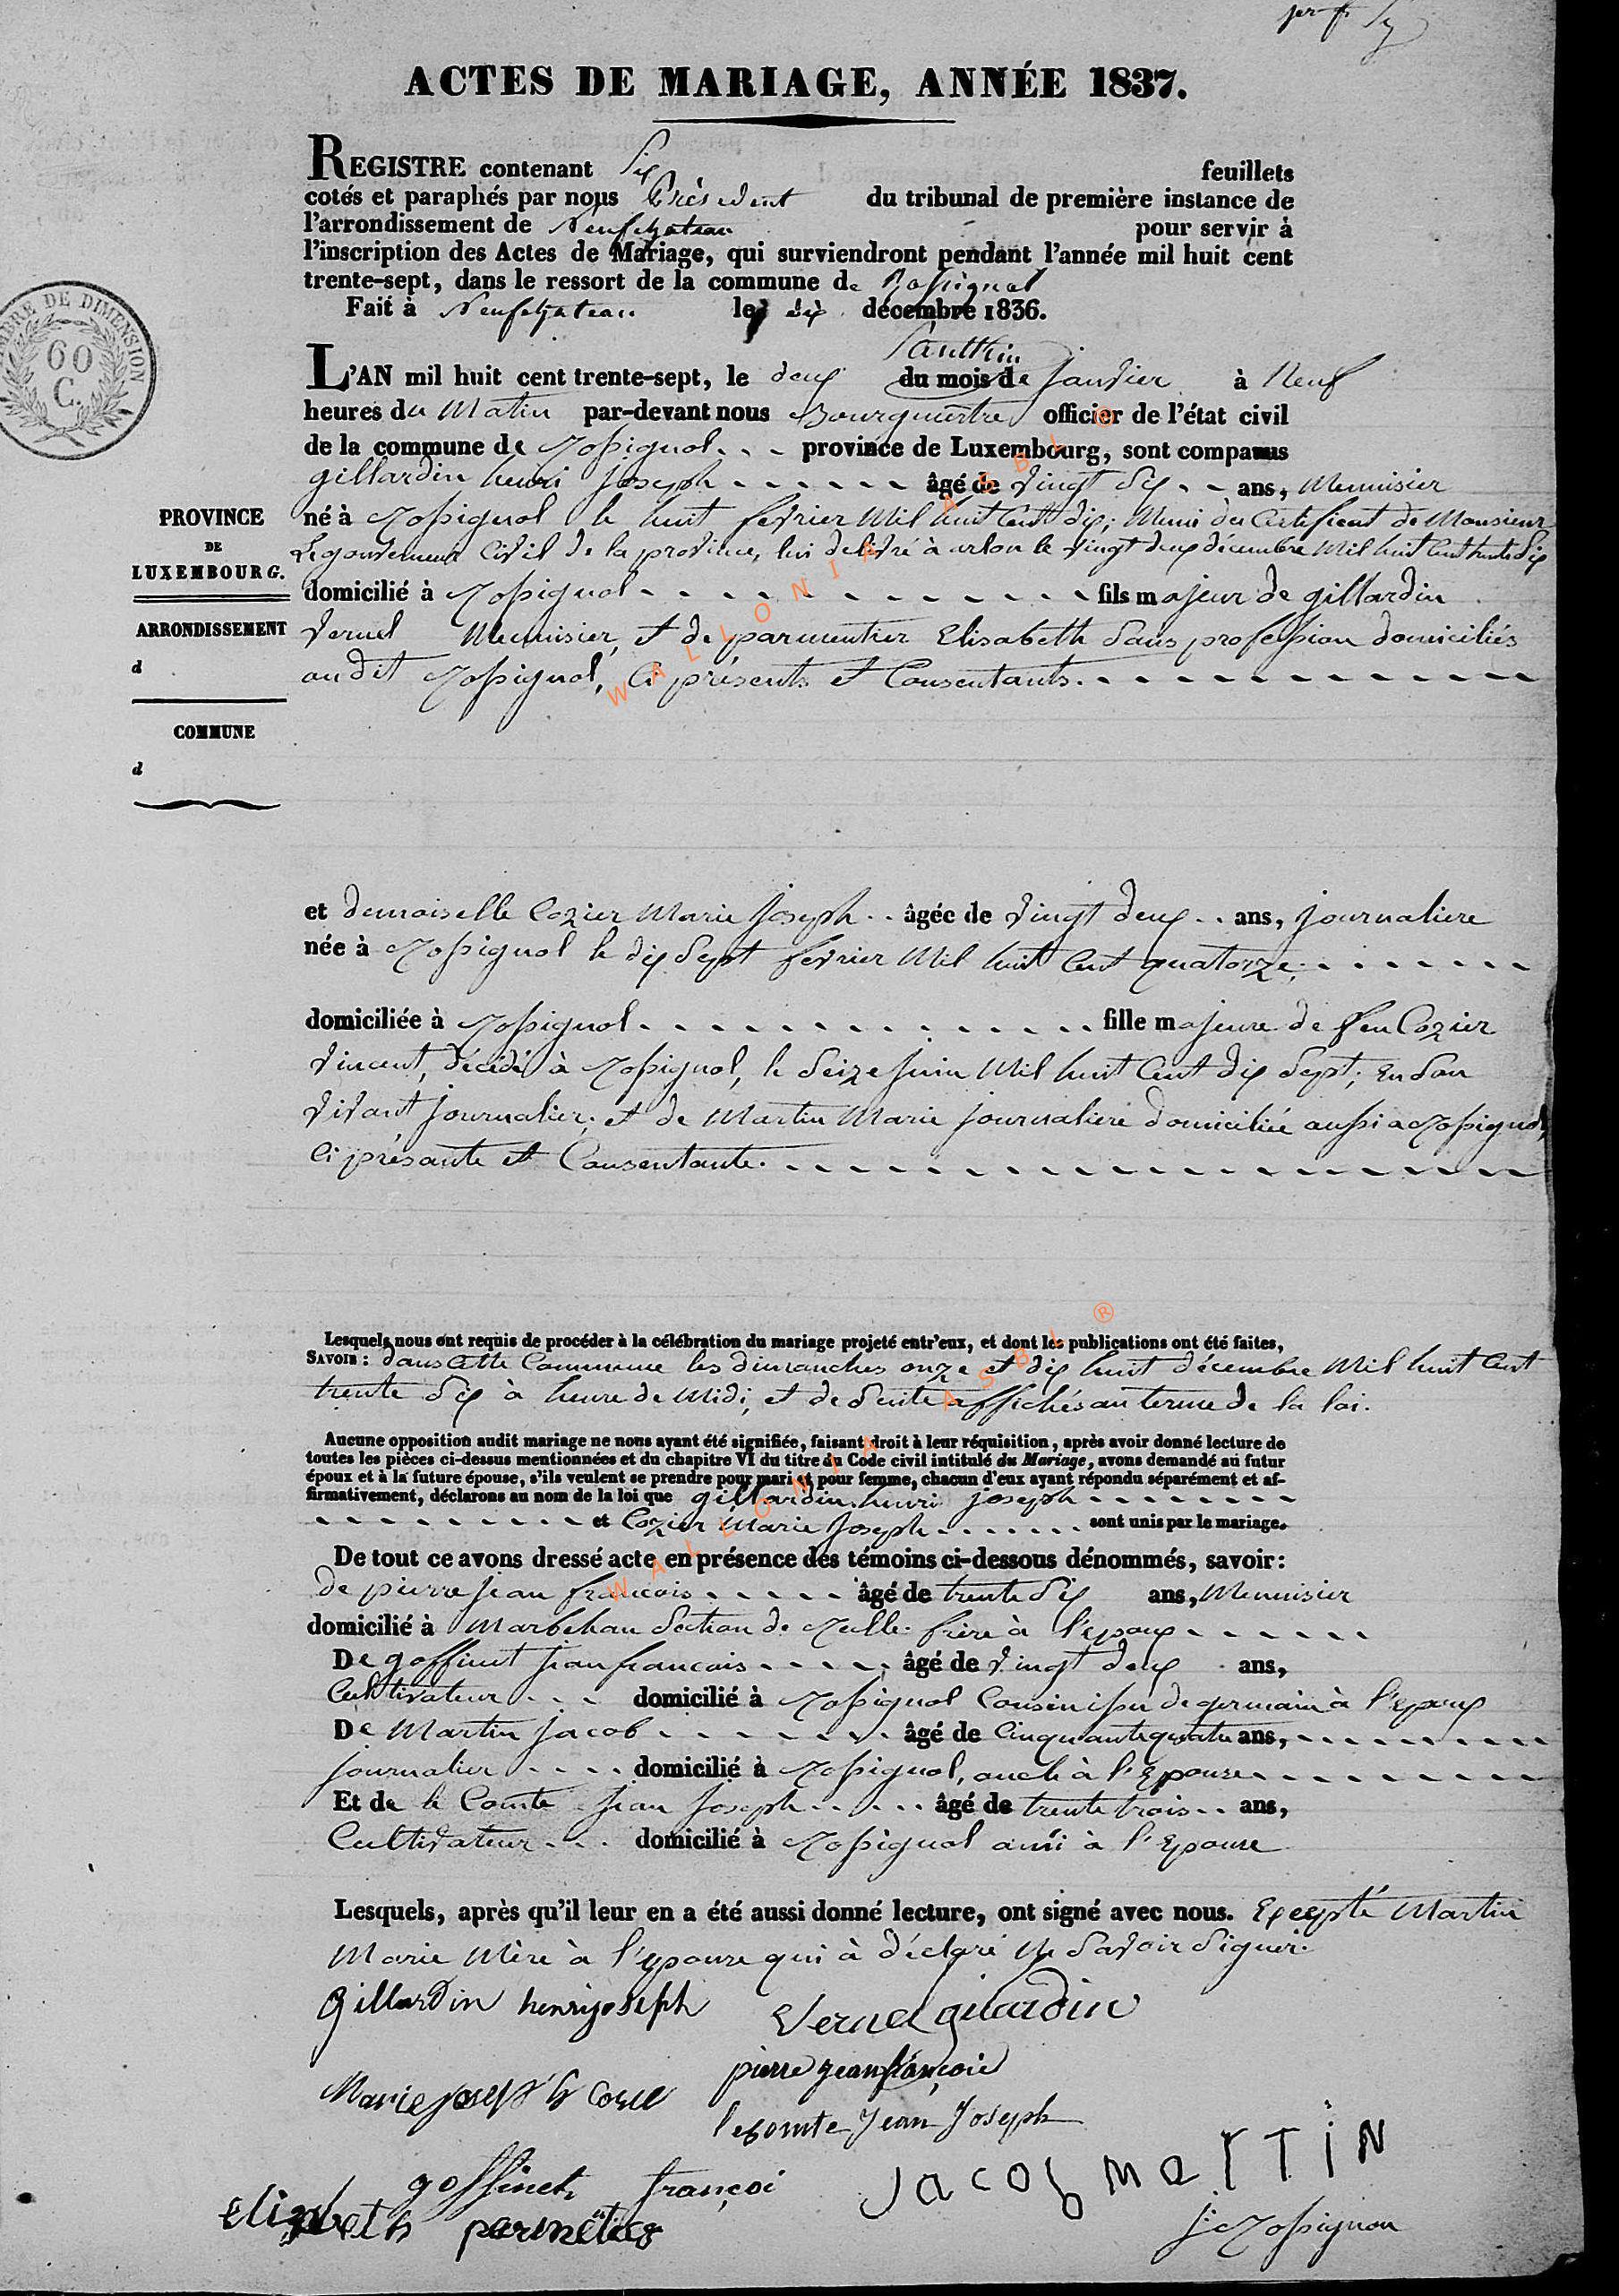 ACTES DE MARIAGE, ANNÉE 1837.
REGISTRE contenant Six feuillets
cotés et paraphés par nous Président du tribunal de première instance de
l'arrondissement de Neufchateau pour servir à
l'inscription des Actes de Mariage, qui surviendront pendant l'année mil huit cent
trente-sept, dans le ressort de la commune de Rossignol
Fait à Neufchateau le dix décembre 1836.
TIMBRE DE DIMENSION
60
C.
L'AN mil huit cent trente-sept, le deux du mois de janvier à Neuf
heures du Matin par-devant nous Bourgmestre officier de l'état civil
de la commune de Rossignol province de Luxembourg, sont comparus
gillardin henri Joseph âgé de vingt six ans, Menuisier
né à Rossignol le huit fevrier Mil huit Cent dix; Muni du Certificat de Monsieur
Le gouverneur Civil de la province, lui delivré à arlon le vingt deux décembre Mil huit Cent trente six
PROVINCE
DE
LUXEMBOURG.
domicilié à Rossignol fils majeur de gillardin
Vernel Menuisier, et de parmentier Elisabeth Sans profession domiciliés
audit Rossignol, Ci présents et Consentants.
ARRONDISSEMENT
d
COMMUNE
d
et demoiselle Cozier Marie Joseph âgée de vingt deux ans, journaliere
née à Rossignol le dix Sept fevrier Mil huit Cent quatorze;
domiciliée à Rossignol fille majeure de feu Cozier
Vincent, décédé à Rossignol, le Seize Juin Mil huit Cent dix Sept; En Son
vivant journalier; et de Martin Marie journaliere domiciliée aussi a Rossignol,
Ci présante et Consentante.
Lesquels nous ont requis de procéder à la célébration du mariage projeté entr'eux, et dont les publications ont été faites,
SAVOIR: dans Cette Commune les dimanches onze et dix huit décembre Mil huit Cent
trente Six à heure de Midi, et de Suite affichés au terme de la loi.
Aucune opposition audit mariage ne nous ayant été signifiée, faisant droit à leur réquisition, après avoir donné lecture de
toutes les pièces ci-dessus mentionnées et du chapitre VI du titre du Code civil intitulé du Mariage, avons demandé au futur
époux et à la future épouse, s'ils veulent se prendre pour mari et pour femme, chacun d'eux ayant répondu séparément et af-
firmativement, déclarons au nom de la loi que gillardin henri joseph
et Cozier Marie Joseph sont unis par le mariage.
De tout ce avons dressé acte en présence des témoins ci-dessous dénommés, savoir:
de pierre jean francois âgé de trente Six ans, Menuisier
domicilié à Marbehan Section de Rulle frère à l'époux
De goffinet jean francois âgé de vingt deux ans,
Cultivateur domicilié à Rossignol Cousin issu de germain à l'époux
De Martin Jacob âgé de Cinquante quatre ans,
journalier domicilié à Rossignol, oncle à l'Epouse
Et de le Comte Jean Joseph âgé de trente trois ans,
Cultivateur domicilié à Rossignol ami à l'Epouse
Lesquels, après qu'il leur en a été aussi donné lecture, ont signé avec nous. Excepté Martin
Marie Mère à l'épouse qui à déclaré Ne Savoir Signer.
Gillardin henrijoseph
Vernel gilardin
pierre jean françois
Marie joseph
lecomte Jean Joseph
goffinet françoi
Jacob marTiN
elizabeth
WALLONIA ASBL ®
WALLONIA ASBL ®